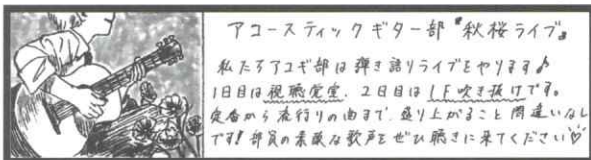 アコースティックギター部『秋桜ライブ』
私たちアコギ部は弾き語りライブをやります♪
1日目は視聴覚室、2日目は1F吹き抜けです。
定番から流行りの曲まで、盛り上がること間違いなし
です!部員の素敵な歌声をぜひ聴きに来てください♡